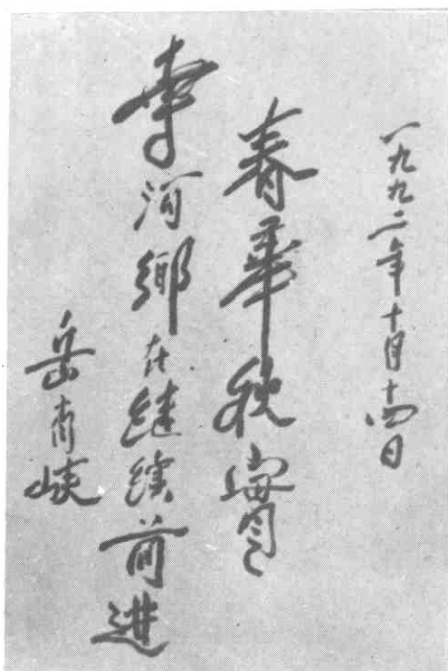 一九九二年十月十四日
春華秋實
李河鄉在继續前进
岳肖峡